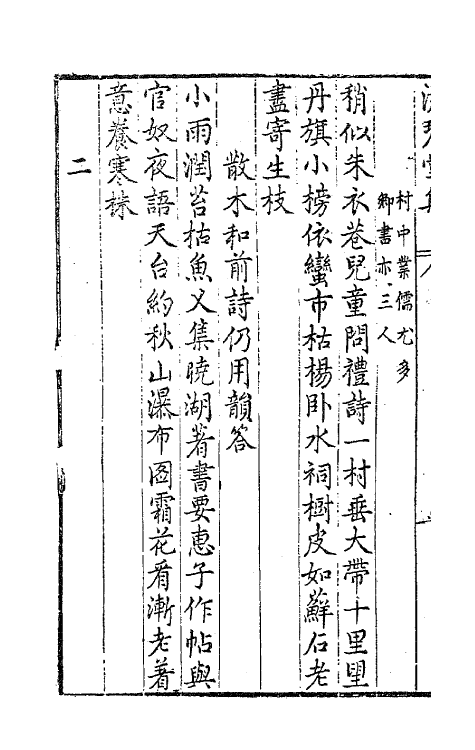 村中業儒尤多
鄉書亦三人
稍似朱衣巷兒童問禮詩一村垂大帶十里朢
丹旗小榜依蠻市枯楊卧水祠樹皮如蘚石老
盡寄生枝
散木和前詩仍用韻答
小雨潤苔枯魚叉集曉湖著書要惠子作帖與
官奴夜語天台約秋山瀑布圖霜花看漸老着
意養寒株
二